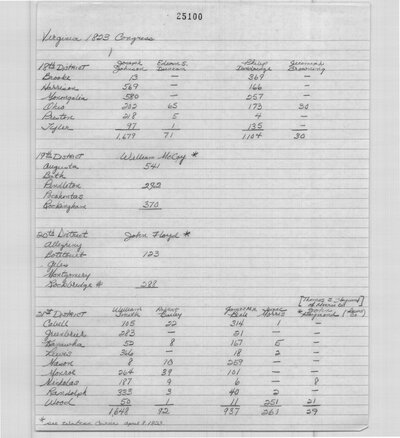 25100
Virginia 1823 Congress
18th District Joseph Johnson Edwin S. Duncan Philip Doddridge Jeremiah Browning
Brooke 13 — 369 —
Harrison 569 — 166 —
Monongalia 580 — 257 —
Ohio 202 65 173 30
Preston 218 5 4 —
Tyler 97 1 135 —
1,679 71 1,104 30
19th District William McCoy *
Augusta 541
Bath
Pendleton 292
Pocahontas
Rockingham 370
20th District John Floyd *
Alleghany
Botetourt 123
Giles
Montgomery
Rockbridge # 288
21st District William Smith Robert Bailey Beale James Morris
Cabell 105 22 314 1 —
Greenbrier 283 — 21 —
Kanawha 52 8 167 5 —
Lewis 366 — 18 2 —
Mason 8 10 259 — —
Monroe 264 39 101 — —
Nicholas 187 9 6 — 8
Randolph 333 3 40 2 —
Wood 50 1 11 251 21
1,648 92 937 261 29